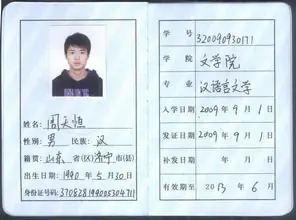 姓名: 周天恒
性别: 男 民族: 汉
籍贯: 山东 省(区) 济宁 市(县)
出生日期: 1990 年 5 月 30 日
身份证号码: 370828199005304711
学号 320090930171
学院 文学院
专业 汉语言文学
入学日期 2009 年 9 月 1 日
发证日期 2009 年 9 月 1 日
补办日期 年 月 日
有效期至 2013 年 6 月